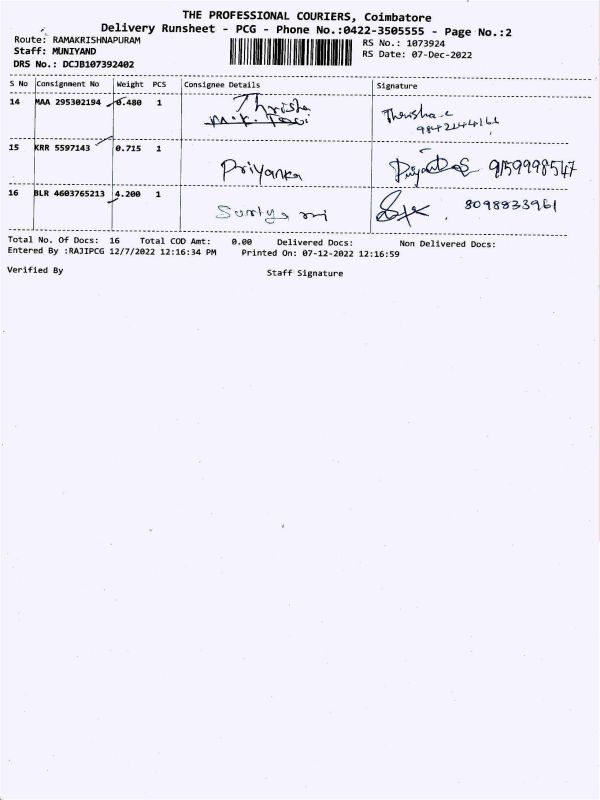 THE PROFESSIONAL COURIERS, Coimbatore
Delivery Runsheet - PCG - Phone No.:0422-3505555 - Page No.:2
Route: RAMAKRISHNAPURAM
Staff: MUNIYAND
DRS No.: DCJB107392402
RS No.: 1073924
RS Date: 07-Dec-2022
S No Consignment No Weight PCS Consignee Details Signature
14 MAA 295302194 0.480 1 Thrisha Thrisha.c
9842244161
15 KRR 5597143 0.715 1 Priyanka 9159998547
16 BLR 4603765213 4.200 1 8098833961
Total No. Of Docs: 16 Total COD Amt: 0.00 Delivered Docs: Non Delivered Docs:
Entered By :RAJIPCG 12/7/2022 12:16:34 PM Printed On: 07-12-2022 12:16:59
Verified By Staff Signature